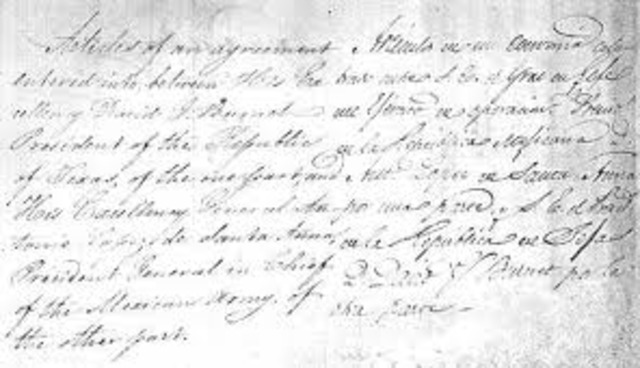 Articles of an agreement
entered into, between His Ex
cellency David G. Burnet
President of the Republic
of Texas, of the one part, and
His Excellency General An
tonio Lopez de Santa Anna,
President General in Chief
of the Mexican Army, of
the other part.
Articulo de un convenio cele
brado entre S. E. el Gral en Gefe
del Ejercito de operacion
de la Republica Mejicana D.
Anto Lopez de Santa Anna
por una parte, y S. E. el Presid
de la Republica de Tejas
D. David G. Burnet por la
otra parte